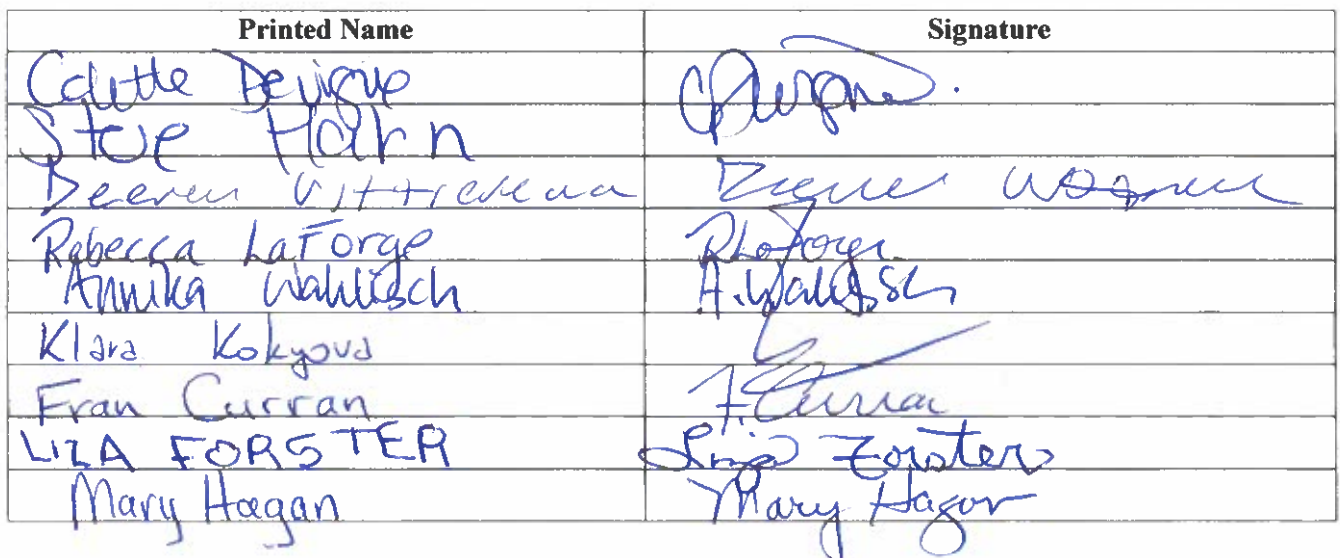 Printed Name Signature
Colette Devigne
Steve Hahn
Deeren
Rebecca LaForge RLaForge
Annika Wahlisch A. Wahlisch
Klara Kokyova
Fran Curran F. Curran
LIZA FORSTER Liza Forster
Mary Haegan Mary Hagan